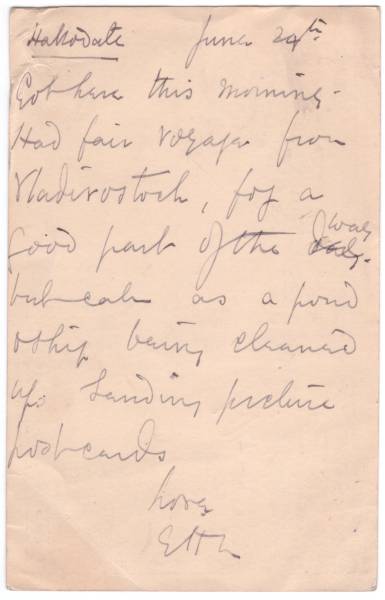 Hakodate June 24th
Got here this morning.
Had fair voyage from
Vladivostock, fog a
good part of the way
but calm as a pond
ship being cleaned
up. Sending picture
postcards
Love